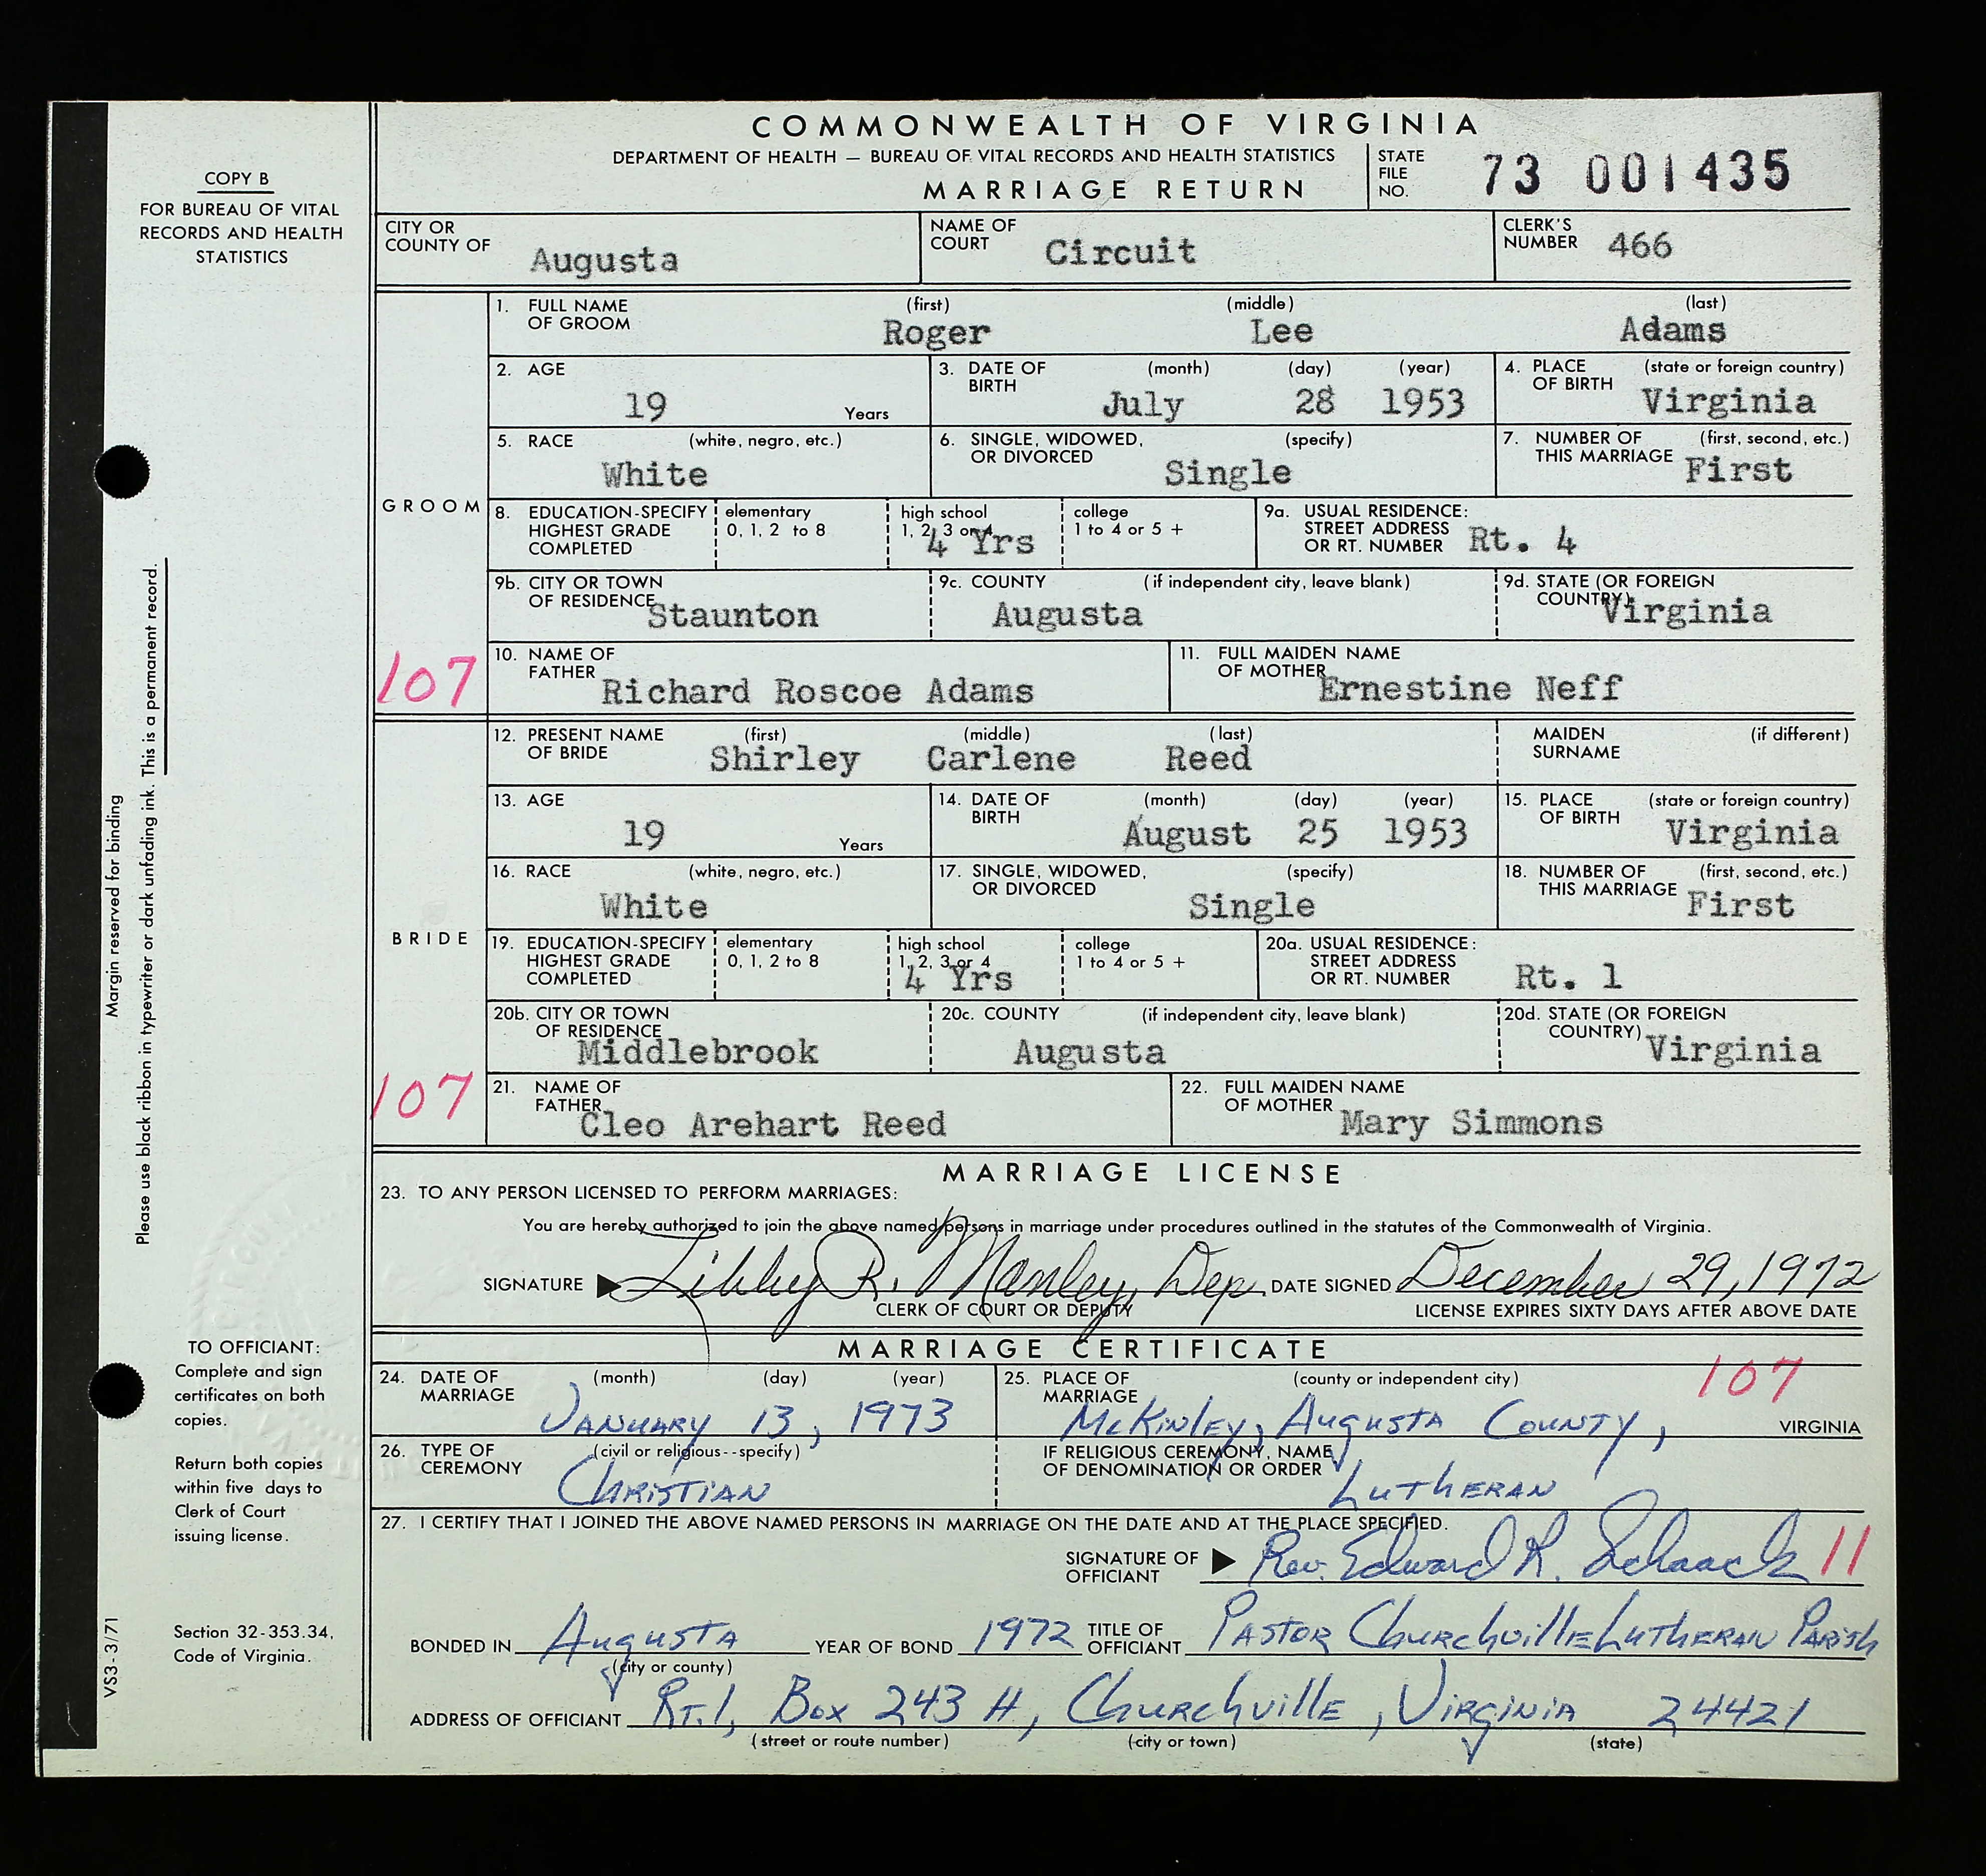 COMMONWEALTH OF VIRGINIA
DEPARTMENT OF HEALTH — BUREAU OF VITAL RECORDS AND HEALTH STATISTICS
MARRIAGE RETURN
STATE FILE NO. 73 001435
COPY B
FOR BUREAU OF VITAL
RECORDS AND HEALTH
STATISTICS
CITY OR COUNTY OF Augusta NAME OF COURT Circuit CLERK'S NUMBER 466
GROOM
1. FULL NAME OF GROOM (first) Roger (middle) Lee (last) Adams
2. AGE 19 Years 3. DATE OF BIRTH (month) July (day) 28 (year) 1953 4. PLACE OF BIRTH (state or foreign country) Virginia
5. RACE (white, negro, etc.) White 6. SINGLE, WIDOWED, OR DIVORCED (specify) Single 7. NUMBER OF THIS MARRIAGE (first, second, etc.) First
8. EDUCATION-SPECIFY HIGHEST GRADE COMPLETED elementary 0, 1, 2 to 8 high school 1, 2, 3 or 4 4 Yrs college 1 to 4 or 5 + 9a. USUAL RESIDENCE: STREET ADDRESS OR RT. NUMBER Rt. 4
9b. CITY OR TOWN OF RESIDENCE Staunton 9c. COUNTY (if independent city, leave blank) Augusta 9d. STATE (OR FOREIGN COUNTRY) Virginia
107
10. NAME OF FATHER Richard Roscoe Adams 11. FULL MAIDEN NAME OF MOTHER Ernestine Neff
BRIDE
12. PRESENT NAME OF BRIDE (first) Shirley (middle) Carlene (last) Reed MAIDEN SURNAME (if different)
13. AGE 19 Years 14. DATE OF BIRTH (month) August (day) 25 (year) 1953 15. PLACE OF BIRTH (state or foreign country) Virginia
16. RACE (white, negro, etc.) White 17. SINGLE, WIDOWED, OR DIVORCED (specify) Single 18. NUMBER OF THIS MARRIAGE (first, second, etc.) First
19. EDUCATION-SPECIFY HIGHEST GRADE COMPLETED elementary 0, 1, 2 to 8 high school 1, 2, 3 or 4 4 Yrs college 1 to 4 or 5 + 20a. USUAL RESIDENCE: STREET ADDRESS OR RT. NUMBER Rt. 1
20b. CITY OR TOWN OF RESIDENCE Middlebrook 20c. COUNTY (if independent city, leave blank) Augusta 20d. STATE (OR FOREIGN COUNTRY) Virginia
107
21. NAME OF FATHER Cleo Arehart Reed 22. FULL MAIDEN NAME OF MOTHER Mary Simmons
MARRIAGE LICENSE
23. TO ANY PERSON LICENSED TO PERFORM MARRIAGES:
You are hereby authorized to join the above named persons in marriage under procedures outlined in the statutes of the Commonwealth of Virginia.
SIGNATURE Libby R. Manley, Dep. DATE SIGNED December 29, 1972
CLERK OF COURT OR DEPUTY LICENSE EXPIRES SIXTY DAYS AFTER ABOVE DATE
MARRIAGE CERTIFICATE
24. DATE OF MARRIAGE (month) (day) (year) January 13, 1973 25. PLACE OF MARRIAGE (county or independent city) McKinley, Augusta County, VIRGINIA 107
26. TYPE OF CEREMONY (civil or religious--specify) Christian IF RELIGIOUS CEREMONY, NAME OF DENOMINATION OR ORDER Lutheran
27. I CERTIFY THAT I JOINED THE ABOVE NAMED PERSONS IN MARRIAGE ON THE DATE AND AT THE PLACE SPECIFIED.
SIGNATURE OF OFFICIANT Rev. Edward R. Schaack 11
BONDED IN Augusta (city or county) YEAR OF BOND 1972 TITLE OF OFFICIANT Pastor Churchville Lutheran Parish
ADDRESS OF OFFICIANT Rt. 1, Box 243 H, Churchville, Virginia 24421
(street or route number) (city or town) (state)
Margin reserved for binding
Please use black ribbon in typewriter or dark unfading ink. This is a permanent record.
TO OFFICIANT:
Complete and sign
certificates on both
copies.
Return both copies
within five days to
Clerk of Court
issuing license.
Section 32-353.34,
Code of Virginia.
VS3-3/71